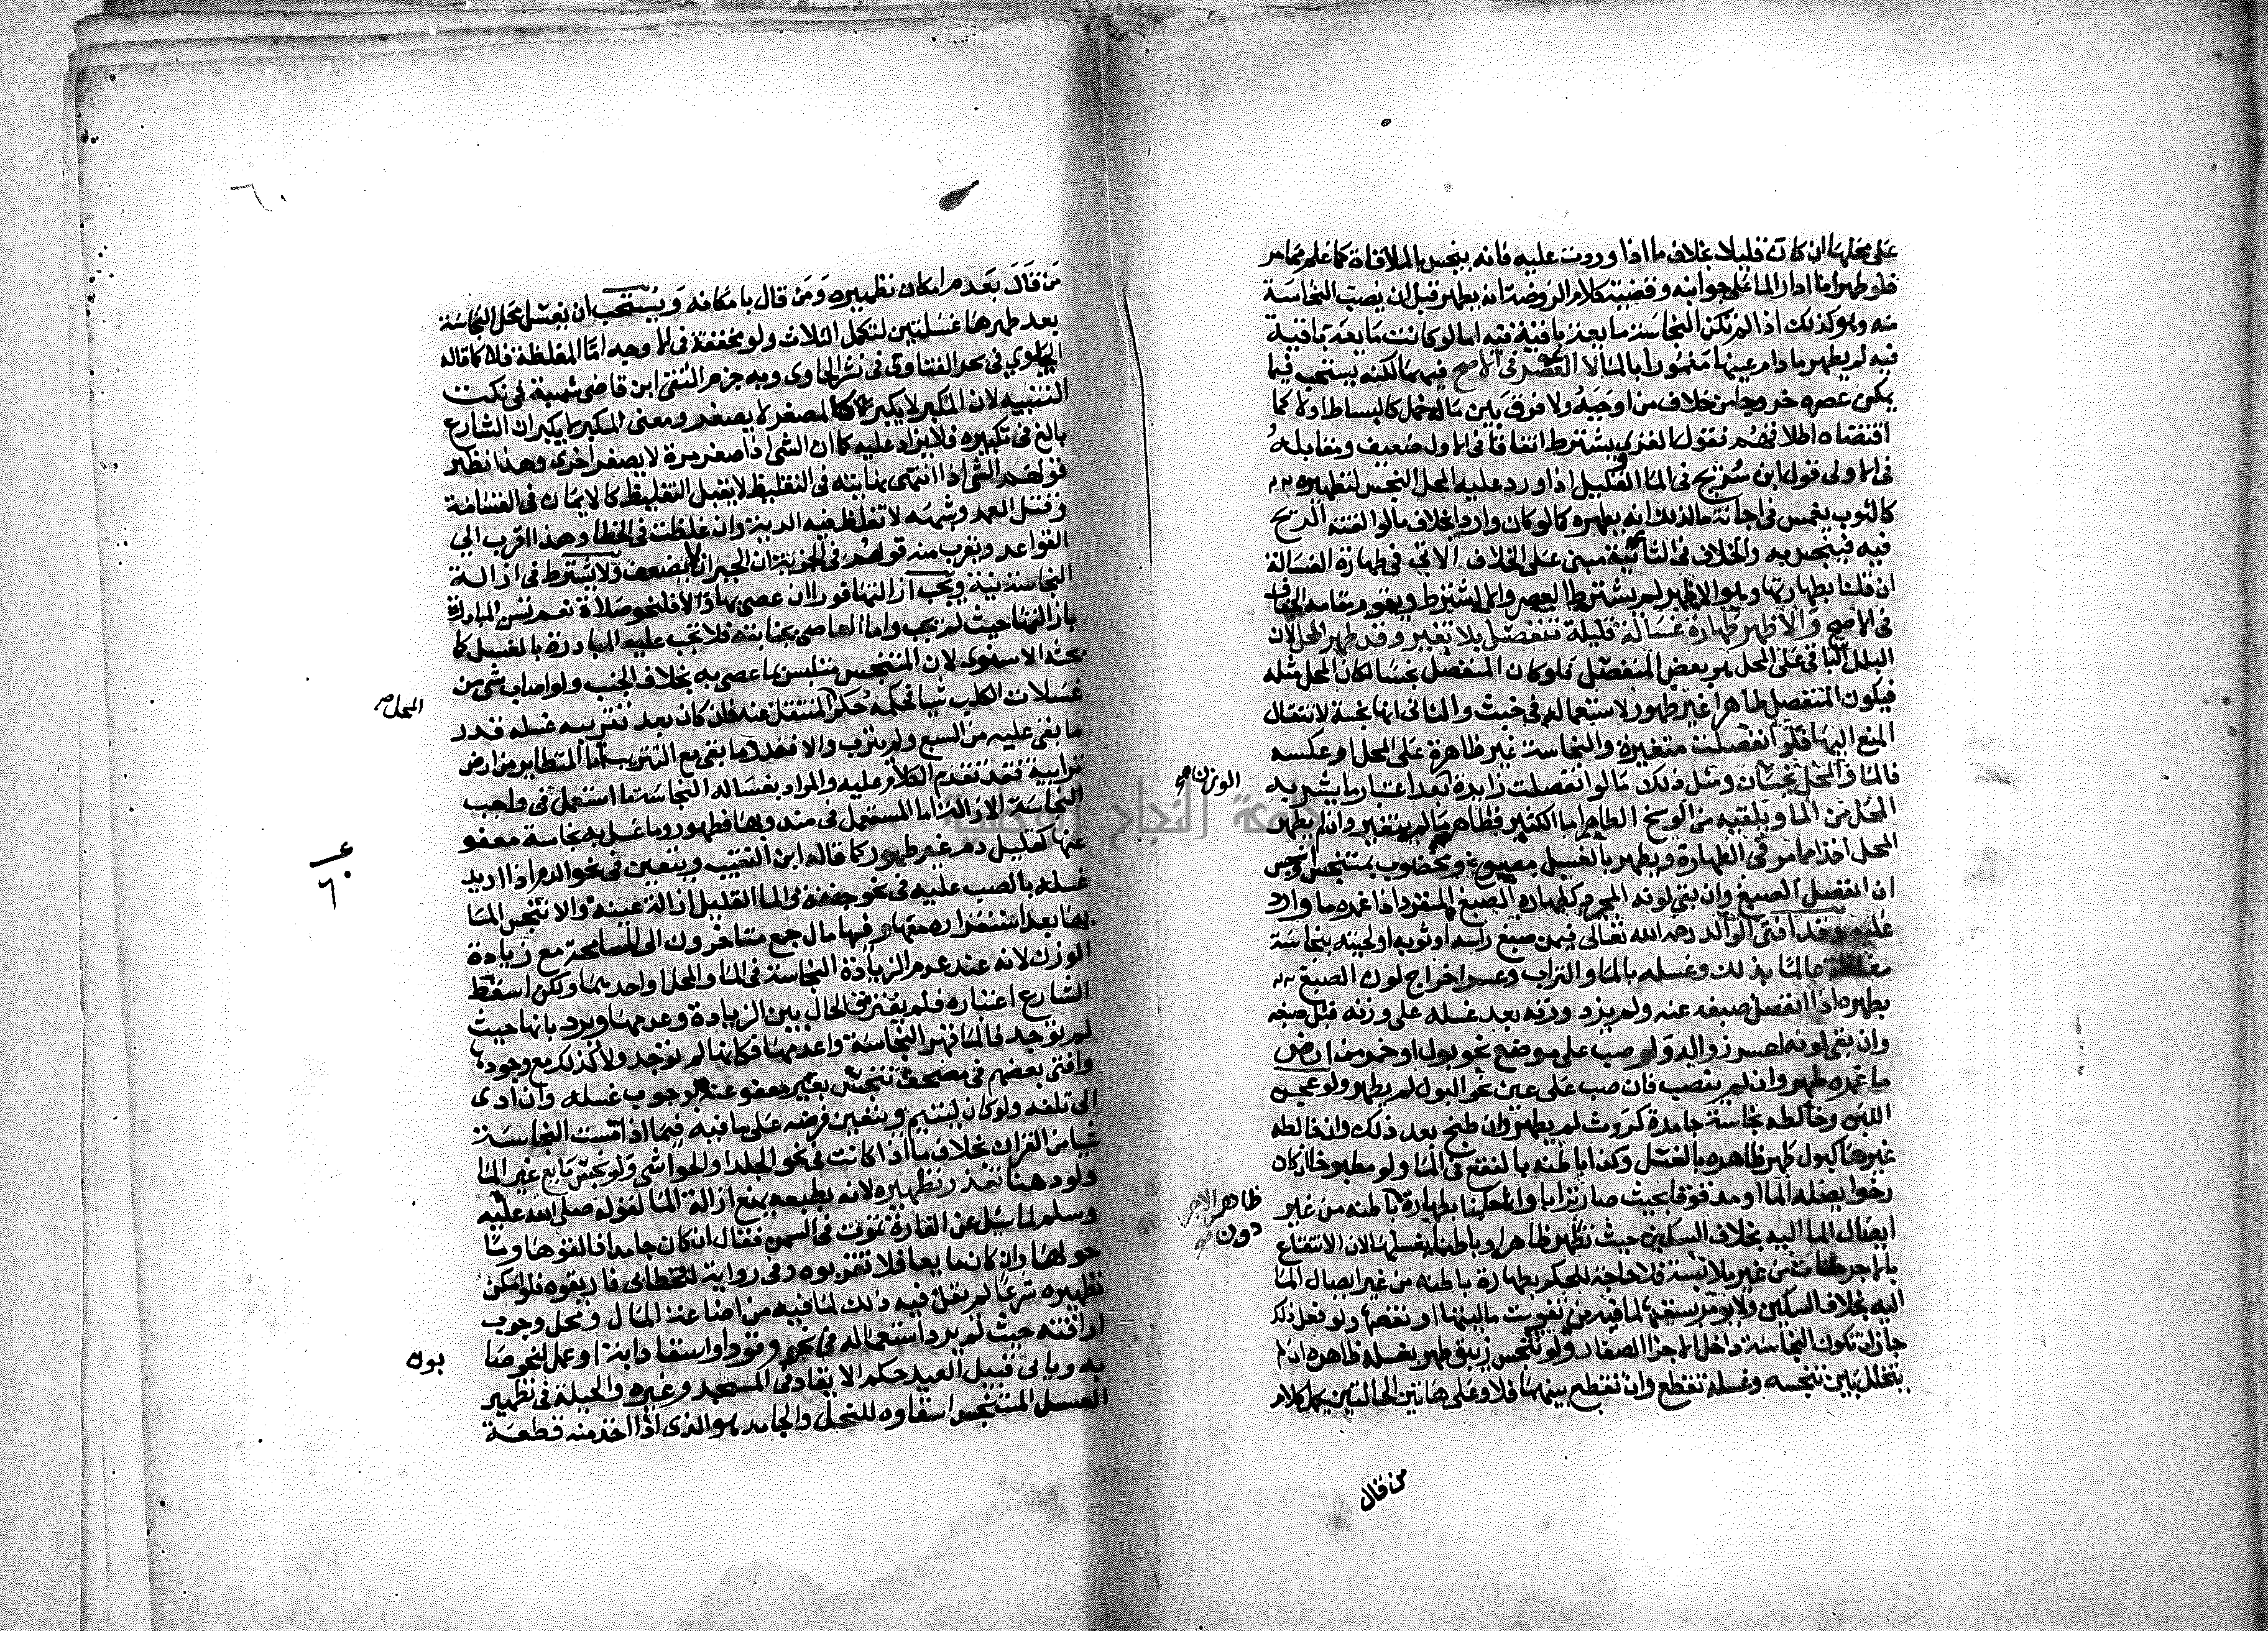 على محلها ان كان قليلا بخلاف ما اذا وردت عليه فانه ينجس بالملاقاة كما علم مما مر
فلو طهر انا ادار الما على جوانبه وقضية كلام الروضة انه يطهر قبل ان يصب النجاسة
منه وهو كذلك اذا لم تكن النجاسة مايعة باقية فيه اما لو كانت مايعة باقية
فيه لم يطهر ما دام عينها مغمورا بالما لا العصر في الاصح فيهما لكنه يستحب فيما
يمكن عصره خروجا من خلاف من اوجبه ولا فرق بين ماله خمل كالبساط اولا كما
اقتضاه اطلاقهم فقول الغزي يشترط اتفاقا في الاول ضعيف ومقابله
في الاولى قول ابن سريج في الما القليل اذا ورد عليه المحل النجس لتطهيره
كالثوب يغمس في اجانة ما لذلك انه يطهره كما لو كان واردا بخلاف ما لو القته الريح
فيه فينجس به والخلاف في الثانية مبني على الخلاف الاتي في طهارة الغسالة
ان قلنا بطهارتها وهو الاظهر لم يشترط العصر والا اشترط ويقوم مقامه الجفاف
في الاصح والاظهر طهارة غسالة قليلة تنفصل بلا تغير وقد طهر المحل لان
البلل الباقي على المحل هو بعض المنفصل فلو كان المنفصل نجسا لكان المحل مثله
فيكون المنفصل طاهرا غير طهور لاستعماله في خبث والثاني انها نجسة لانتقال
المنع اليها فلو انفصلت متغيرة والنجاسة غير ظاهرة على المحل او عكسه
فالما والمحل نجسان ومثل ذلك ما لو انفصلت زايدة بعد اعتبار ما يشربه
الوزن صح
المحل من الما ويلقيه من الوسخ الطاهر اما الكثير فطاهر ما لم يتغير وان لم يطهر
المحل اخذا مما مر في الطهارة ويطهر بالغسل مصبوغ ومخضوب بمتنجس او نجس
ان انفصل الصبغ وان بقي لونه المجرد كطهارة الصبغ المنفرد اذا غمره ما وارد
عليه وقد افتى الوالد رحمه الله تعالى فيمن صبغ راسه او ثوبه او لحيته بنجاسة
مغلظة عالما بذلك وغسله بالما والتراب وعسر اخراج لون الصبغ
بطهره اذا انفصل صبغه عنه ولم يزد وزنه بعد غسله على وزنه قبل صبغه
وان بقي لونه لعسر زواله ولو صب على موضع نحو بول او خمر من ارض
ما غمره طهر وان لم ينضب فان صب على عين نحو البول لم يطهر ولو عجن
اللبن وخالطه نجاسة جامدة كروث لم يطهر وان طبخ بعد ذلك وان خالطه
غيرها كبول طهر ظاهره بالغسل وكذا باطنه بالنقع في الما ولو مطبوخا ان كان
رخوا يصله الما او مدقوقا بحيث صار ترابا وانما حكمنا بطهارة باطنه من غير
ظاهر الاجر
دون صح
ايصال الما اليه بخلاف السكين حيث تطهر ظاهرا وباطنا بغسلها لان الانتفاع
بالاجر متات من غير ملابسة فلا حاجة للحكم بطهارة باطنه من غير ايصال الما
اليه بخلاف السكين ولا يومر بسحقها لما فيه من تفويت ماليتها او نقصها ولو فعل ذلك
جاز ان تكون النجاسة داخل الاجزا الصغار ولو تنجس زيبق طهر بغسله ظاهره ان لم
يتخلل بين تنجسه وغسله تقطع وان تقطع بينهما فلا وعلى هاتين الحالتين يحمل كلام
من قال
٦٠
من قال بعدم امكان تطهيره ومن قال بامكانه ويستحب ان يغسل محل النجاسة
بعد طهرها غسلتين لتكمل الثلاث ولو مخففة في الاوجه اما المغلظة فلا كما قاله
الجيلوي في بحر الفتاوى في نشر الحاوى وبه جزم التقي ابن قاضي شهبة في نكت
التنبيه لان المكبر لا يكبر كما ان المصغر لا يصغر ومعنى المكبر لا يكبر ان الشارع
بالغ في تكبيره فلا يزاد عليه كما ان الشي اذا صغر مرة لا يصغر اخرى وهذا نظير
قولهم الشي اذا انتهى نهايته في التغليظ لا يقبل التغليظ كالايمان في القسامة
وقتل العمد وشبهه لا تغلظ فيه الدية وان غلظت في الخطا وهذا اقرب الى
القواعد ويقرب منه قولهم في الجزية ان الجبران لا يضعف ولا يشترط في ازالة
النجاسة نية ويجب ازالتها فورا ان عصى بها والا فلنحو صلاة نعم تسن المبادرة
بازالتها حيث لم تجب واما العاصي بجنابته فلا تجب عليه المبادرة بالغسل كما
بحثه الاسنوي لان المتنجس متلبس بما عصى به بخلاف الجنب ولو اصاب شي من
غسلات الكلب شيا فحكمه حكم المنتقل عنه فان كان بعد تتريبه غسله قدر
المحل صح
ما بقي عليه من السبع ولم يترب والا فقدر ما بقي مع التتريب اما المتطاير من ارض
ترابية فقد تقدم الكلام عليه والمراد بغسالة النجاسة ما استعمل في واجب
النجاسة الازالة اما المستعمل في مندوبها فطهور وما غسل به نجاسة معفو
عنها كقليل دم غير طهور كما قاله ابن النقيب ويتعين في نحو الدم اذا اريد
٦٠
غسله بالصب عليه في نحو جفنة والما القليل ازالة عينه والا تنجس الما
بها بعد استقراره معها وفيها مال جمع متاخرون الى المسامحة مع زيادة
الوزن لانه عند عدم الزيادة النجاسة في الما والمحل واحد بهما ولكن اسقط
الشارع اعتباره فلم يفترق الحال بين الزيادة وعدمها ويرد بانها حيث
لم توجد فالما قهر النجاسة واعدمها فكانها لم توجد ولا كذلك مع وجودها
وافتى بعضهم في مصحف تنجس بغير معفو عنه بوجوب غسله وان ادى
الى تلفه ولو كان ليتيم ويتعين فرضه على ما فيه فيما اذا مست النجاسة
شيا من القران بخلاف ما اذا كانت في نحو الجلد او الحواشي ولو تنجس مايع غير الما
ولو دهنا تعذر تطهيره لانه بطبعه يمنع ازالة الما لقوله صلى الله عليه
وسلم لما سيل عن الفارة تموت في السمن فقال ان كان جامدا فالقوها وما
حولها وان كان مايعا فلا تقربوه وفي رواية للخطابي فاريقوه فلو امكن
تطهيره شرعا لم يقل فيه ذلك لما فيه من اضاعة المال ومحل وجوب
اراقته حيث لم يرد استعماله في نحو وقود او اسقا دابة او عمل نحو صا
بون
به وياتي قبيل العيد حكم الايقاد في المسجد وغيره والحيلة في تطهير
العسل المتنجس اسقاوه للنحل والجامد هو الذي اذا اخذ منه قطعة